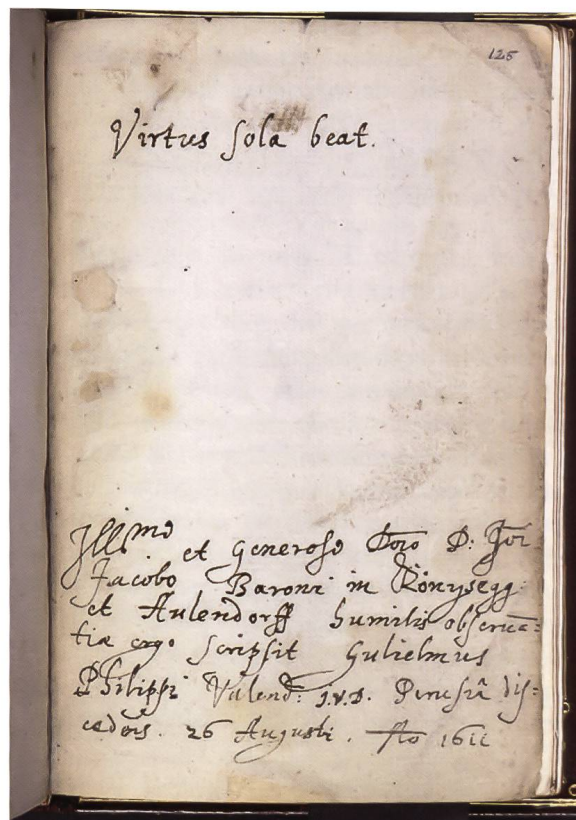 125
Virtus sola beat.
Illmo et Generoso Dno D:
Jacobo Baroni in Königsegg
et Aulendorff humilis observan=
tiæ ergo scripsit Gulielmus
Philippi Valend: J.V.D. Perusiâ dis=
cedens. 26 Augusti. Ao 1611